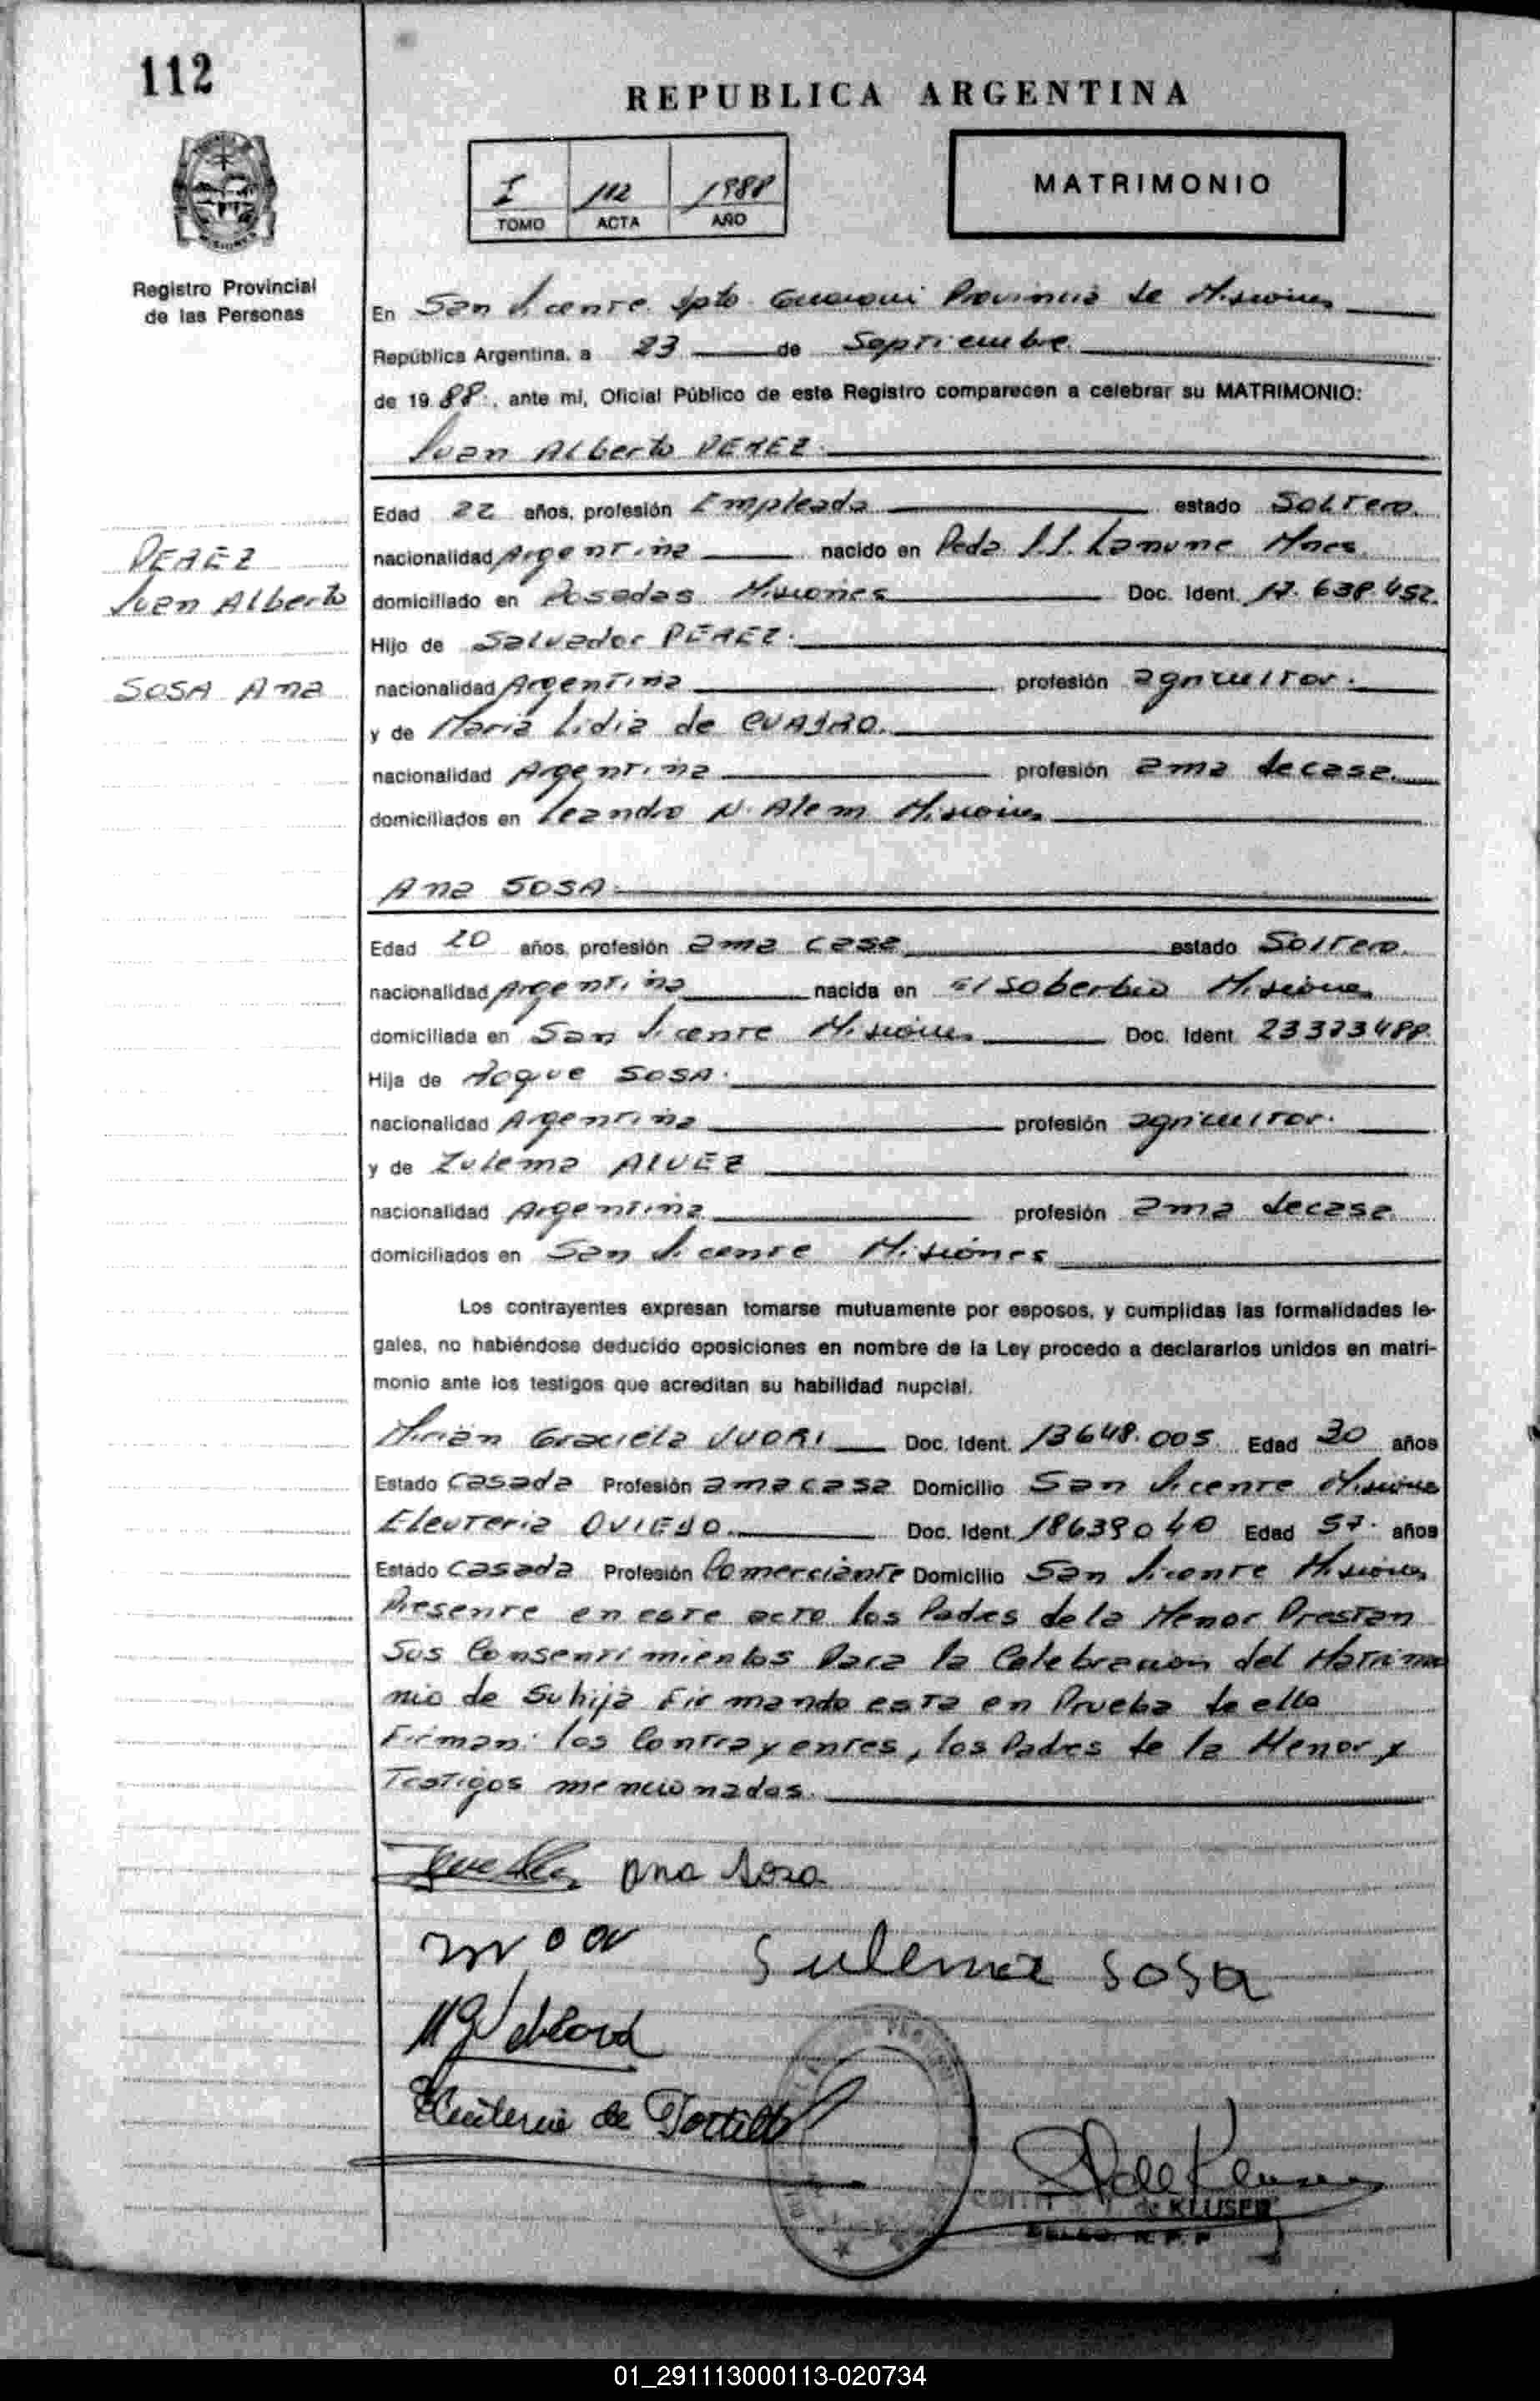 112
REPUBLICA ARGENTINA
I 112 1988
TOMO ACTA AÑO
MATRIMONIO
Registro Provincial
de las Personas
En San Vicente Dpto Guarani Provincia de Misiones
República Argentina, a 23 de Septiembre
de 1988, ante mí, Oficial Público de este Registro comparecen a celebrar su MATRIMONIO:
Juan Alberto PEREZ.
Edad 22 años, profesión Empleado estado Soltero.
PEREZ
nacionalidad Argentina nacido en Pcda. Mnes.
Juan Alberto
domiciliado en Posadas Misiones Doc. Ident. 17.638.452.
Hijo de Salvador PEREZ.
SOSA Ana
nacionalidad Argentina profesión agricultor.
y de Maria Lidia de CUADRO.
nacionalidad Argentina profesión ama decasa.
domiciliados en Leandro N. Alem Misiones
Ana SOSA.
Edad 20 años, profesión ama casa estado Soltero.
nacionalidad Argentina nacida en El Soberbio Misiones
domiciliada en San Vicente Misiones Doc. Ident. 23373488.
Hija de Roque SOSA.
nacionalidad Argentina profesión agricultor.
y de Zulema ALVEZ
nacionalidad Argentina profesión ama decasa
domiciliados en San Vicente Misiones
Los contrayentes expresan tomarse mutuamente por esposos, y cumplidas las formalidades le-
gales, no habiéndose deducido oposiciones en nombre de la Ley procedo a declararlos unidos en matri-
monio ante los testigos que acreditan su habilidad nupcial.
Mirian Graciela VUORI Doc. Ident. 13648.005 Edad 30 años
Estado Casada Profesión ama casa Domicilio San Vicente Misiones
Eleuteria OVIEDO. Doc. Ident. 18639040 Edad 57. años
Estado Casada Profesión Comerciante Domicilio San Vicente Misiones
Presente en este acto los Padres de la Menor Prestan
Sus Consentimientos Para la Celebracion del Matrimo
nio de Suhija Firmando esta en Prueba de ello
Firman: los Contrayentes, los Padres de la Menor y
Testigos mencionadas.
Ana Sosa
Sulema Sosa
Eleuteria de
de KLUSER
DELEG. R. P. P
01_291113000113-020734